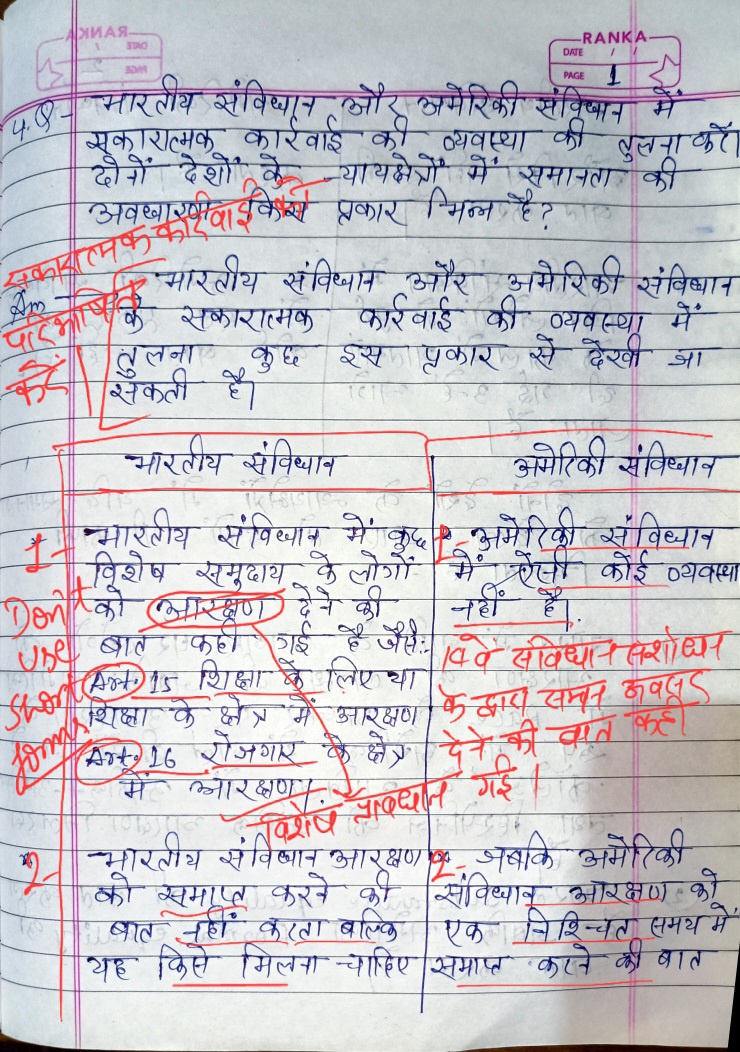 RANKA
DATE / /
PAGE 1
4.Q- भारतीय संविधान और अमेरिकी संविधान में
सकारात्मक कार्रवाई की व्यवस्था की तुलना करें।
दोनों देशों के न्यायक्षेत्रों में समानता की
अवधारणा किस प्रकार भिन्न है?
सकारात्मक कार्रवाई को
परिभाषित
करें
Ans - भारतीय संविधान और अमेरिकी संविधान
के सकारात्मक कार्रवाई की व्यवस्था में
तुलना कुछ इस प्रकार से देखी जा
सकती है।
भारतीय संविधान
1- भारतीय संविधान में कुछ
विशेष समुदाय के लोगों
को आरक्षण देने की
बात कही गई है जैसे:-
Art. 15 शिक्षा के लिए या
शिक्षा के क्षेत्र में आरक्षण
Art. 16 रोजगार के क्षेत्र
में आरक्षण।
Don't
use
short
forms
विशेष प्रावधान
2- भारतीय संविधान आरक्षण
को समाप्त करने की
बात नहीं करता बल्कि
यह किसे मिलना चाहिए
अमेरिकी संविधान
1- अमेरिकी संविधान
में ऐसी कोई व्यवस्था
नहीं है।
14वे संविधान संशोधन
के द्वारा समान अवसर
देने की बात कही
गई।
2- जबकि अमेरिकी
संविधान आरक्षण को
एक निश्चित समय में
समाप्त करने की बात